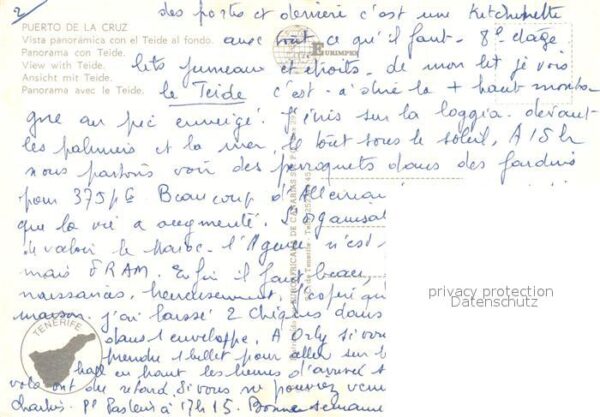 2
des portes et derrière c'est une Kitchenette
PUERTO DE LA CRUZ
Vista panorámica con el Teide al fondo.
Panorama con Teide.
View with Teide.
Ansicht mit Teide.
Panorama avec le Teide.
EURIMPEX
avec tout ce qu'il faut. 8e étage
lits jumeaux et étroits. de mon lit je vois
le Teide c'est à dire la + haute monta-
gne au pic enneigé. J'écris sur la loggia. devant
les palmiers et la mer. le tout sous le soleil, A 15 h
nous partons voir des perroquets dans des jardins
pour 375 ptes Beaucoup d'
que la vie a augmenté.
le Maroc. l'Agence n'est
mais FRAM. Enfin il fait beau,
heureusement. J'espère qu
maison. j'ai laissé 2 chèques dans
dans l'enveloppe. A Orly si vous
prendre 1 billet pour aller sur
hall en haut les heures d'arrivée
vols ont du retard. Si vous ne pouvez veni
à 17 h 15. Bonne semaine
TENERIFE
privacy protection
Datenschutz